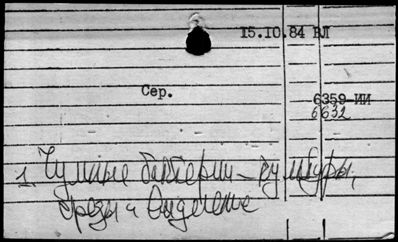 15.10.84 ВЛ
Сер.
6359-ИИ
6632
1. Чумные бактерии – культуры,
среды и выделение